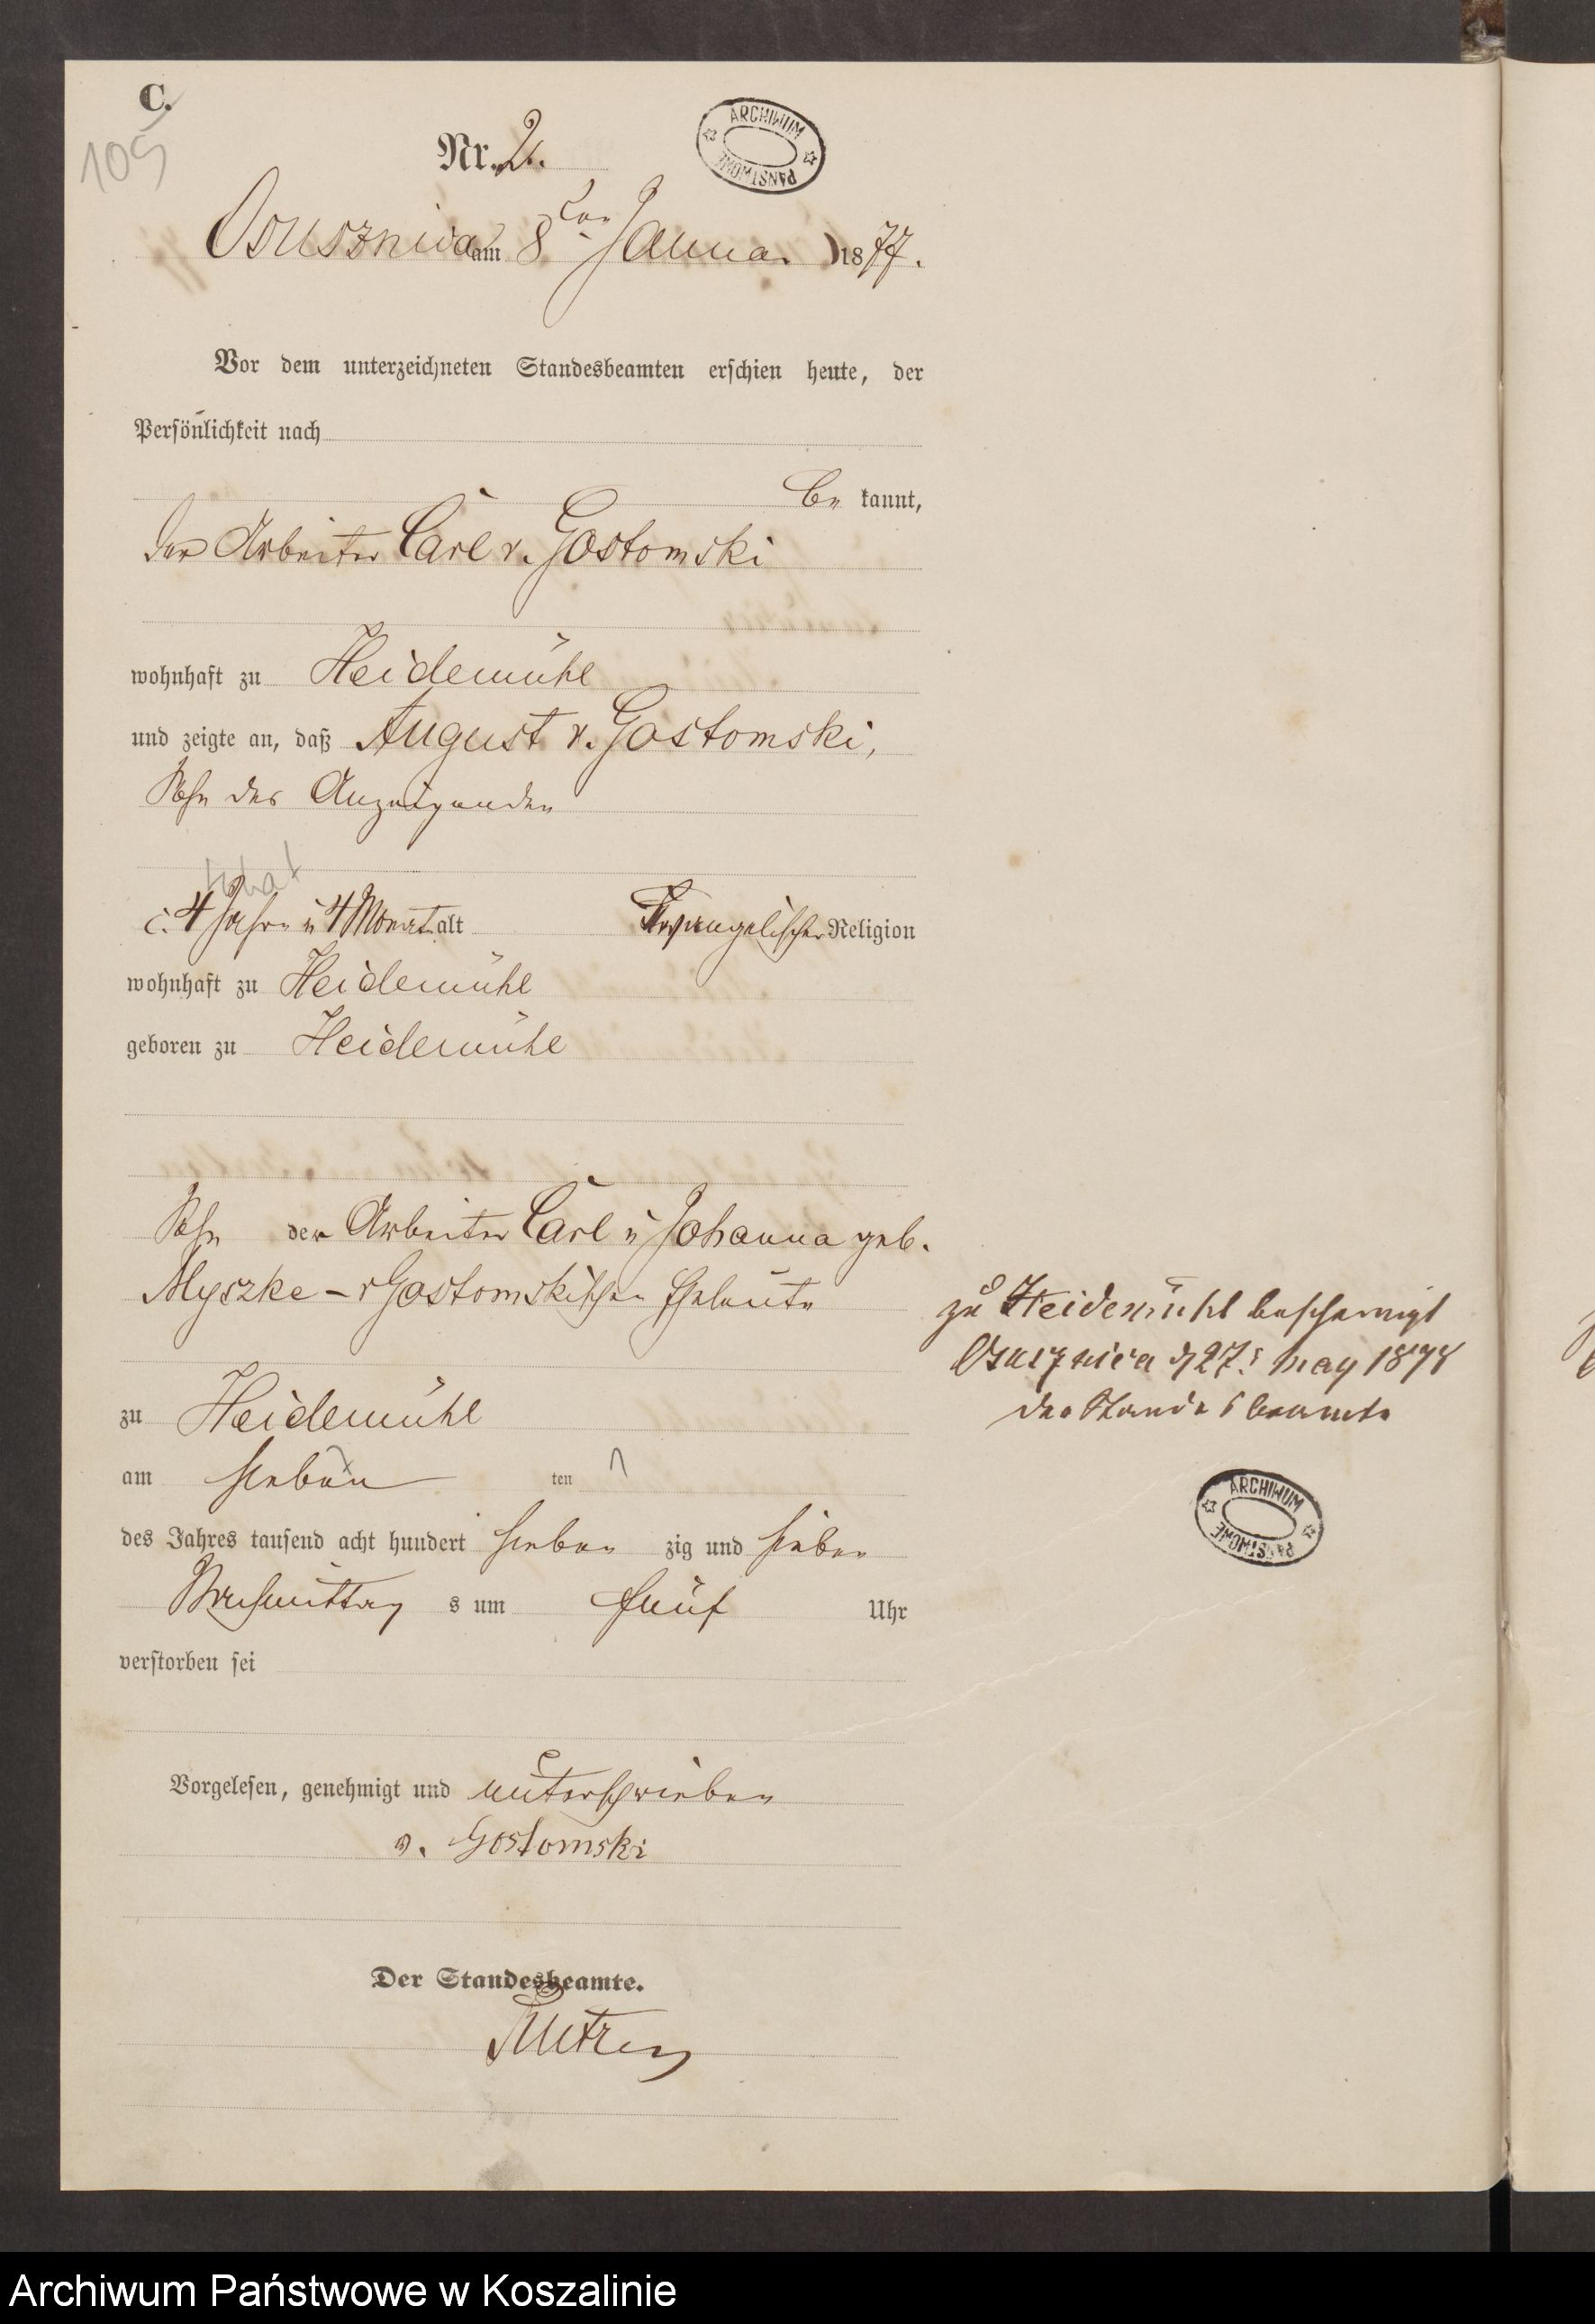 C.
105
Nr. 2.
ARCHIWUM PAŃSTWOWE
Osusznica am 8ten Januar 1877.
Vor dem unterzeichneten Standesbeamten erschien heute, der
Persönlichkeit nach
be kannt,
der Arbeiter Carl v. Gostomski
wohnhaft zu Heidemühl
und zeigte an, daß August v. Gostomski,
Sohn des Anzeigenden
4 Jahre u 4 Monat alt Evangelischer Religion
wohnhaft zu Heidemühl
geboren zu Heidemühl
Sohn der Arbeiter Carl u Johanna geb.
Myszke – v Gostomskischen Eheleute
zu Heidemühl bescheinigt
Osusznica d 27t May 1878
der Standesbeamte
zu Heidemühl
am sieben ten
des Jahres tausend acht hundert sieben zig und sieben
Nachmittag s um fünf Uhr
ARCHIWUM PAŃSTWOWE
verstorben sei
Vorgelesen, genehmigt und unterschrieben
v. Gostomski
Der Standesbeamte.
Archiwum Państwowe w Koszalinie